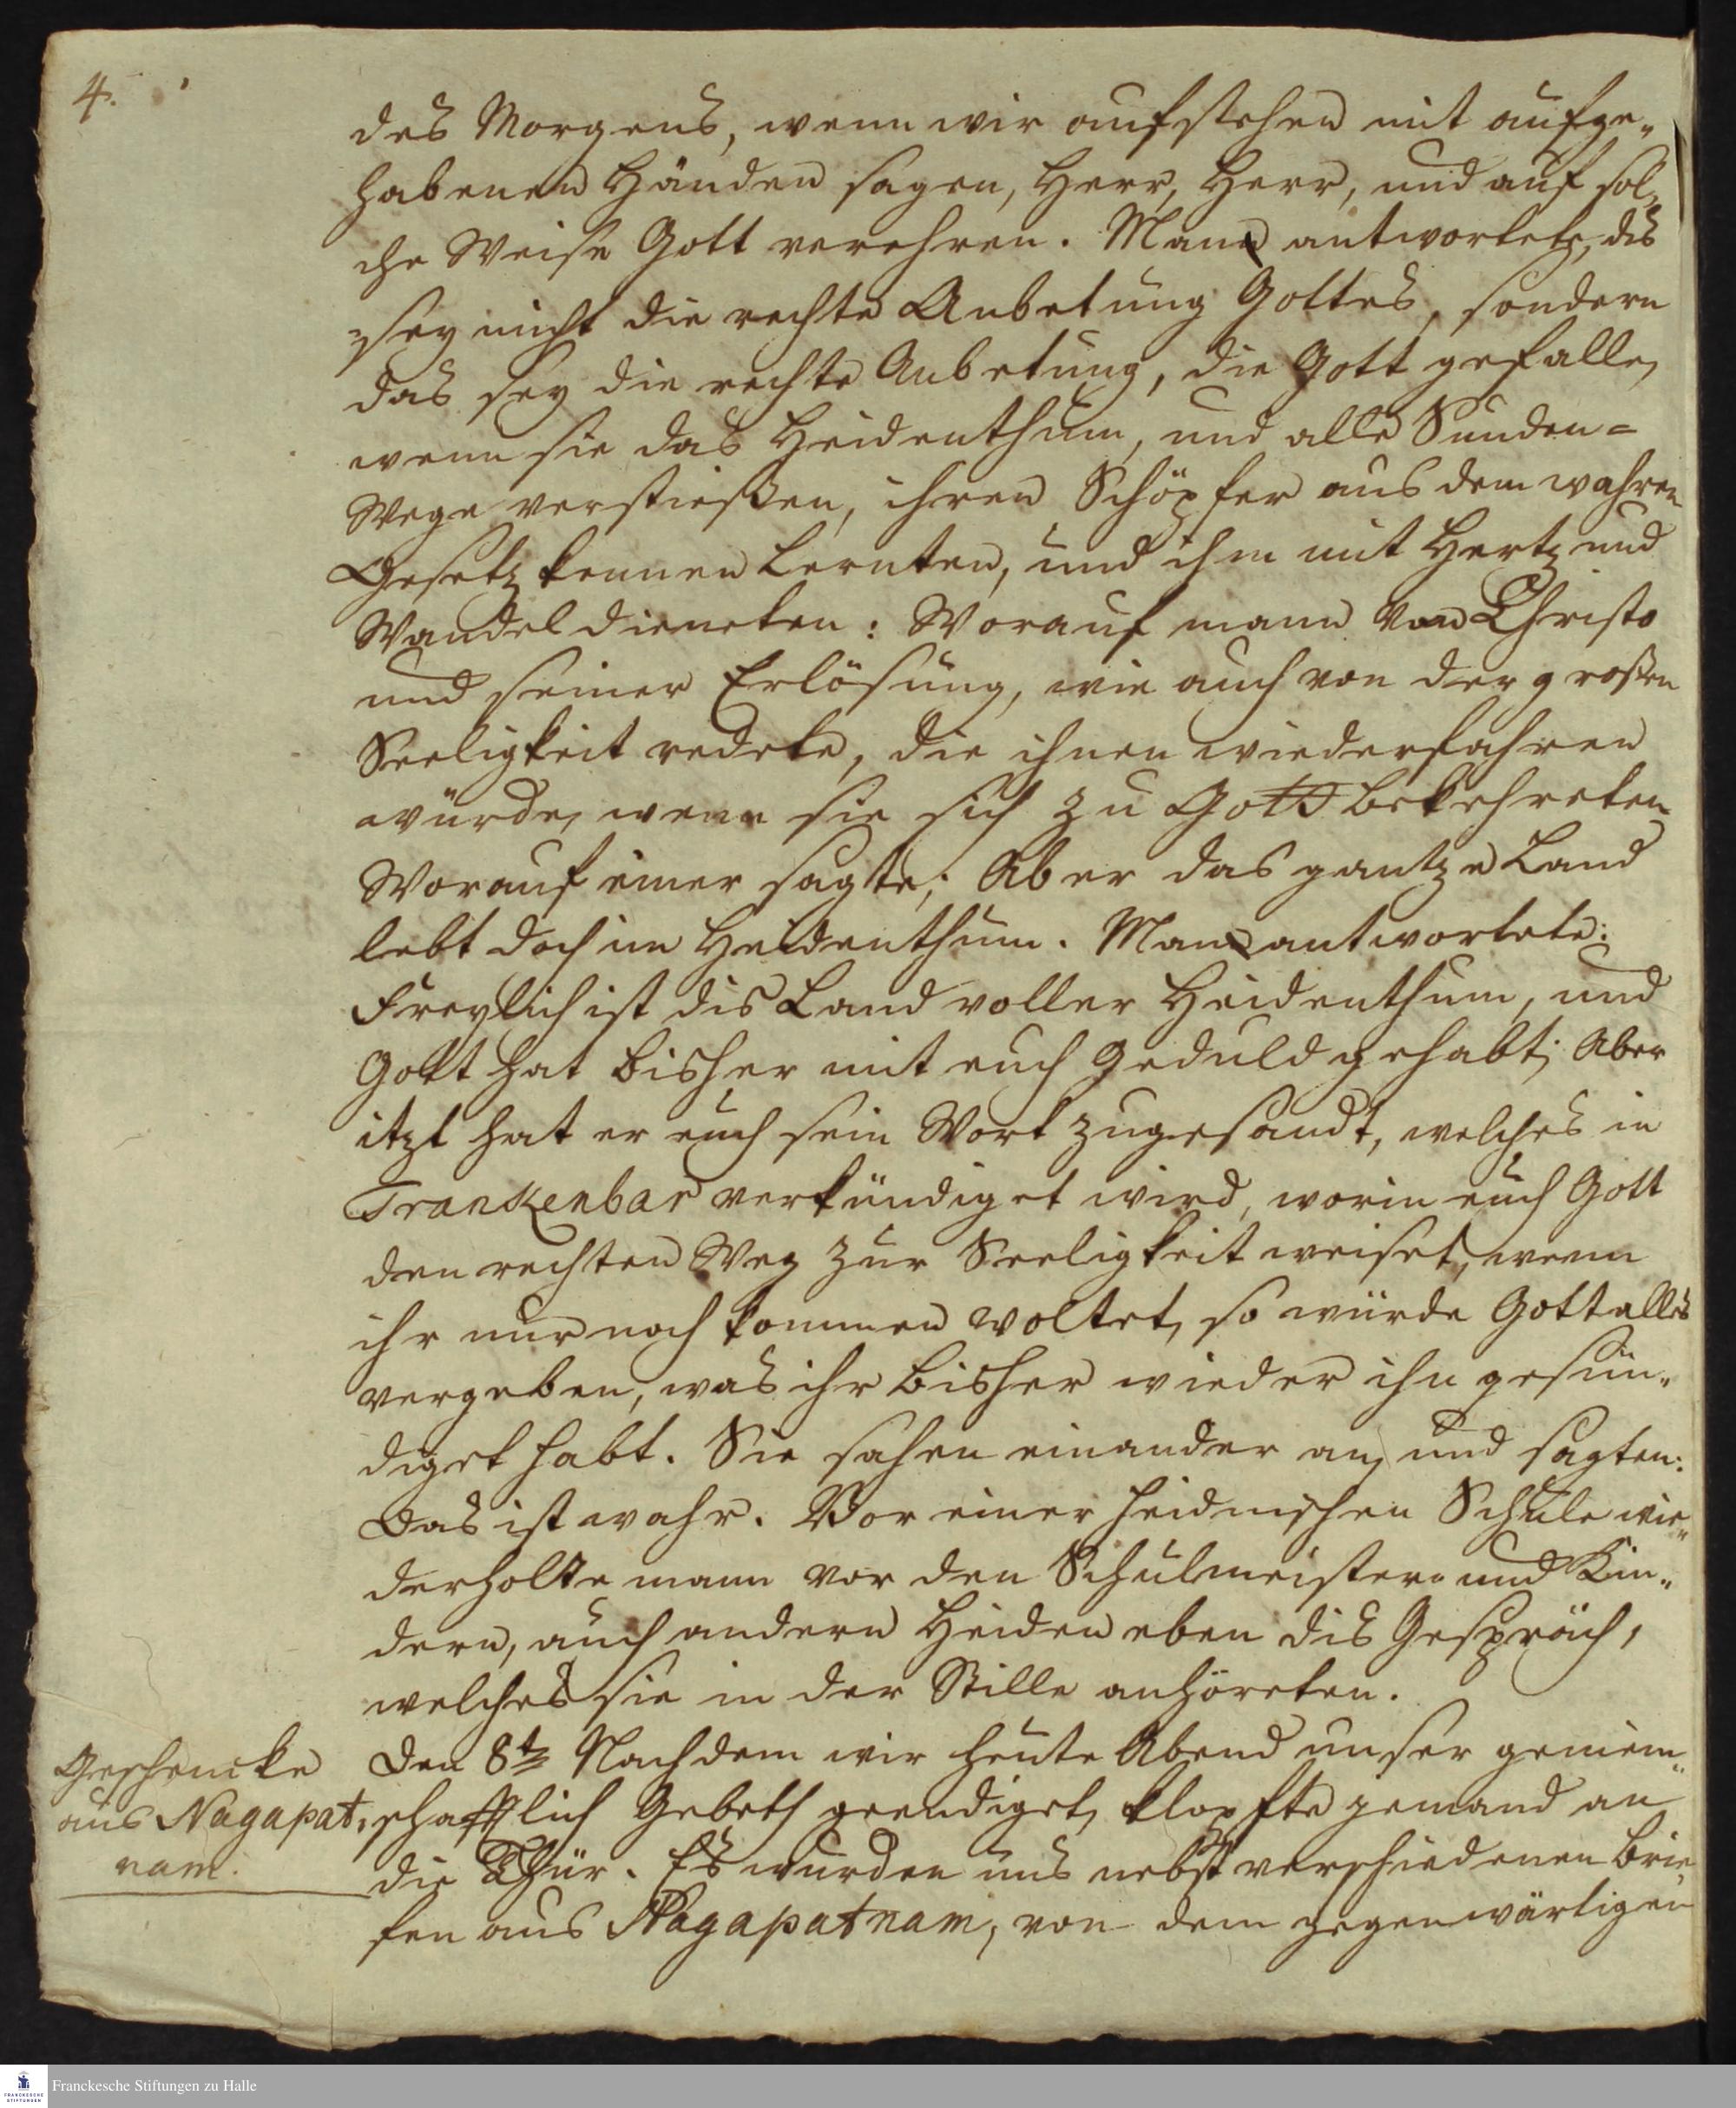 4.
des Morgens, wenn wir aufstehen mit aufge„
habenen Händen sagen, Herr, Herr, und auf sol„
che Weise Gott verehren. Mann antwortete, dis
sey nicht die rechte Anbetung Gottes, sondern
das sey die rechte Anbetung, die Gott gefalle,
wenn sie das Heidenthum, und alle Sunden=
Wege verstießen, ihren Schöpfer aus dem wahren
Gesetz kennen Lernten, und ihm mit Hertz und
Wandel dieneten: Worauf mann von Christo
und seiner Erlösung, wie auch von der großen
Seeligkeit redete, die ihnen wiederfahren
würde, wenn sie sich zu Gott bekehreten.
Worauf einer sagte; Aber das gantze Land
lebt doch im Heidenthum. Mann antwortete:
Freylich ist dis Land voller Heidenthum, und
Gott hat bisher mit euch Geduld gehabt; Aber
itzt hat er euch sein Wort zugesandt, welches in
Trankenbar verkündiget wird, worin euch Gott
den rechten Weg zur Seeligkeit weiset, wenn
ihr nur noch kommen woltet, so würde Gott alles
vergeben, was ihr bisher wieder ihn gesün„
diget habt. Sie sahen einander an, und sagten:
Das ist wahr. Vor einer heidnischen Schule wie„
derholte mann vor den Schulmeister und Kin„
dern, auch andern Heiden eben dis Gespräch,
welches sie in der Stille anhöreten.
Geschencke
aus Nagapat„
nam.
Den 8ten Nachdem wir heute Abend unser gemein„
schafftlich Gebeth geendiget, klopfte jemand an
die Thür. Es wurden uns nebst verschiedenen Brie
fen aus Nagapatnam, von dem gegenwärtigen
Franckesche Stiftungen zu Halle
FRANCKESCHE
STIFTUNGEN